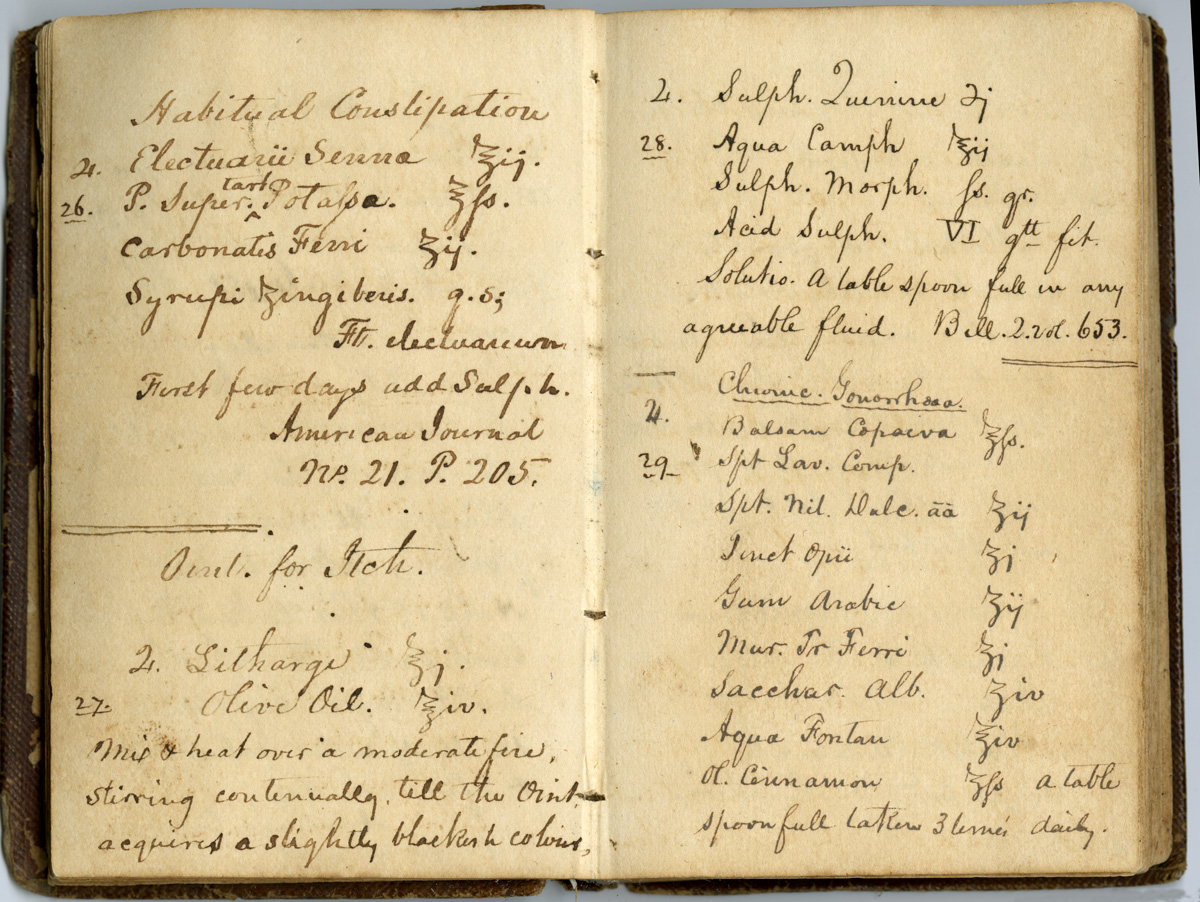 Habitual Constipation
2. Electuarii Senna ℥ij.
26. P. Super. tart Potassa. ℥ss.
Carbonatis Ferri ʒij.
Syrupi Zingiberis. q.s;
Ft. electuarium
First few days add Sulph.
American Journal
No. 21. P. 205.
Oint. for Itch.
2. Litharge ℥j.
27. Olive Oil. ℥iv.
Mix & heat over a moderate fire,
stirring contenually, till the Oint.
acquires a slightly blackish colour,
2. Sulph. Quinine ℈j
28. Aqua Camph ℥ij
Sulph. Morph. ss. gr.
Acid Sulph. VI gtt fit.
Solutio. A table spoon full in any
agreeable fluid. Bell. 2. vol. 653.
Chronic. Gonorrhoea.
2. Balsam Copaiva ℥ss.
29 Spt Lav. Comp.
Spt. Nit. Dulc. āā ʒij
Tinct Opii ʒj
Gum Arabic ʒij
Mur. Tr Ferri ʒj
Sacchar. Alb. ʒiv
Aqua Fontan ℥iv
Ol. Cinnamon ʒss a table
spoonfull taken 3 times daily.